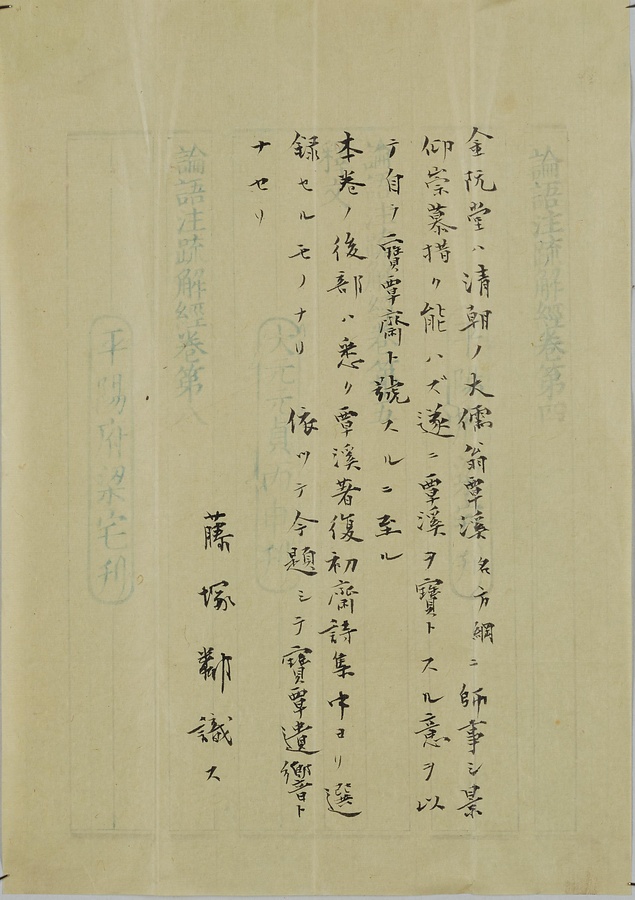 金阮堂ハ清朝ノ大儒翁覃溪名方綱ニ師事シ景
仰崇慕措ク能ハズ遂ニ覃溪ヲ寶トスル意ヲ以
テ自ラ寶覃齋ト號スルニ至ル
本巻ノ後部ハ悉ク覃溪著復初齋詩集中ヨリ選
録セルモノナリ 依ツテ今題シテ寶覃遺響ト
ナセリ
藤塚鄰識ス
論語注疏解經卷第四
論語注疏解經卷第
平陽府梁宅刊